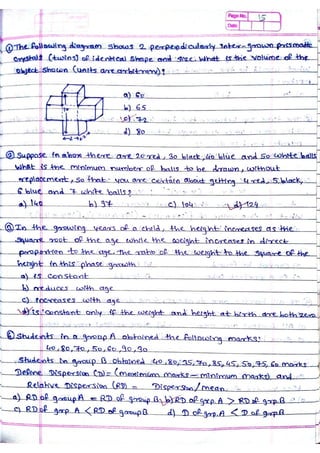 Page No. 15
Date
① The following diagram shows 2 perpendicularly inter-grown prismatic
crystals (twins) of identical shape and size. What is the volume of the
object shown (units are arbitrary)?
a) 60
b) 65
c) 72
d) 80
② Suppose in a box there are 20 red, 30 black, 40 blue and 50 white balls
What is the minimum number of balls to be drawn, without
replacement, so that you are certain about getting 4 red, 5 black,
6 blue and 7 white balls?
a) 140 b) 97 c) 104 d) 124
③ In the growing years of a child, the height increases as the
square root of the age while the weight increases in direct
proportion to the age. The ratio of the weight to the square of the
height in this phase growth
a) is constant
b) reduces with age
c) increases with age
d) is constant only if the weight and height at birth are both zero
④ Students in a group A obtained the following marks:
40, 80, 70, 50, 60, 90, 30
Students in group B obtained 40, 80, 35, 70, 85, 45, 50, 75, 60 marks
Define Dispersion (D) = (maximum marks - minimum marks) and
Relative Dispersion (RD) = Dispersion/mean.
a) RD of group A = RD of group B b) RD of grp. A > RD of grp B
c) RD of grp. A < RD of group B d) D of grp. A < D of grp B